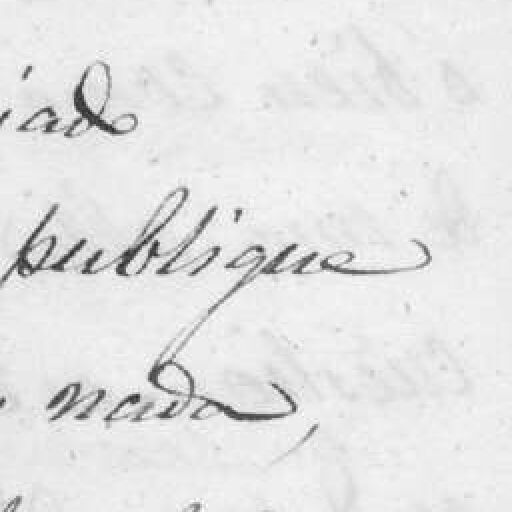 iade
publique
nada,